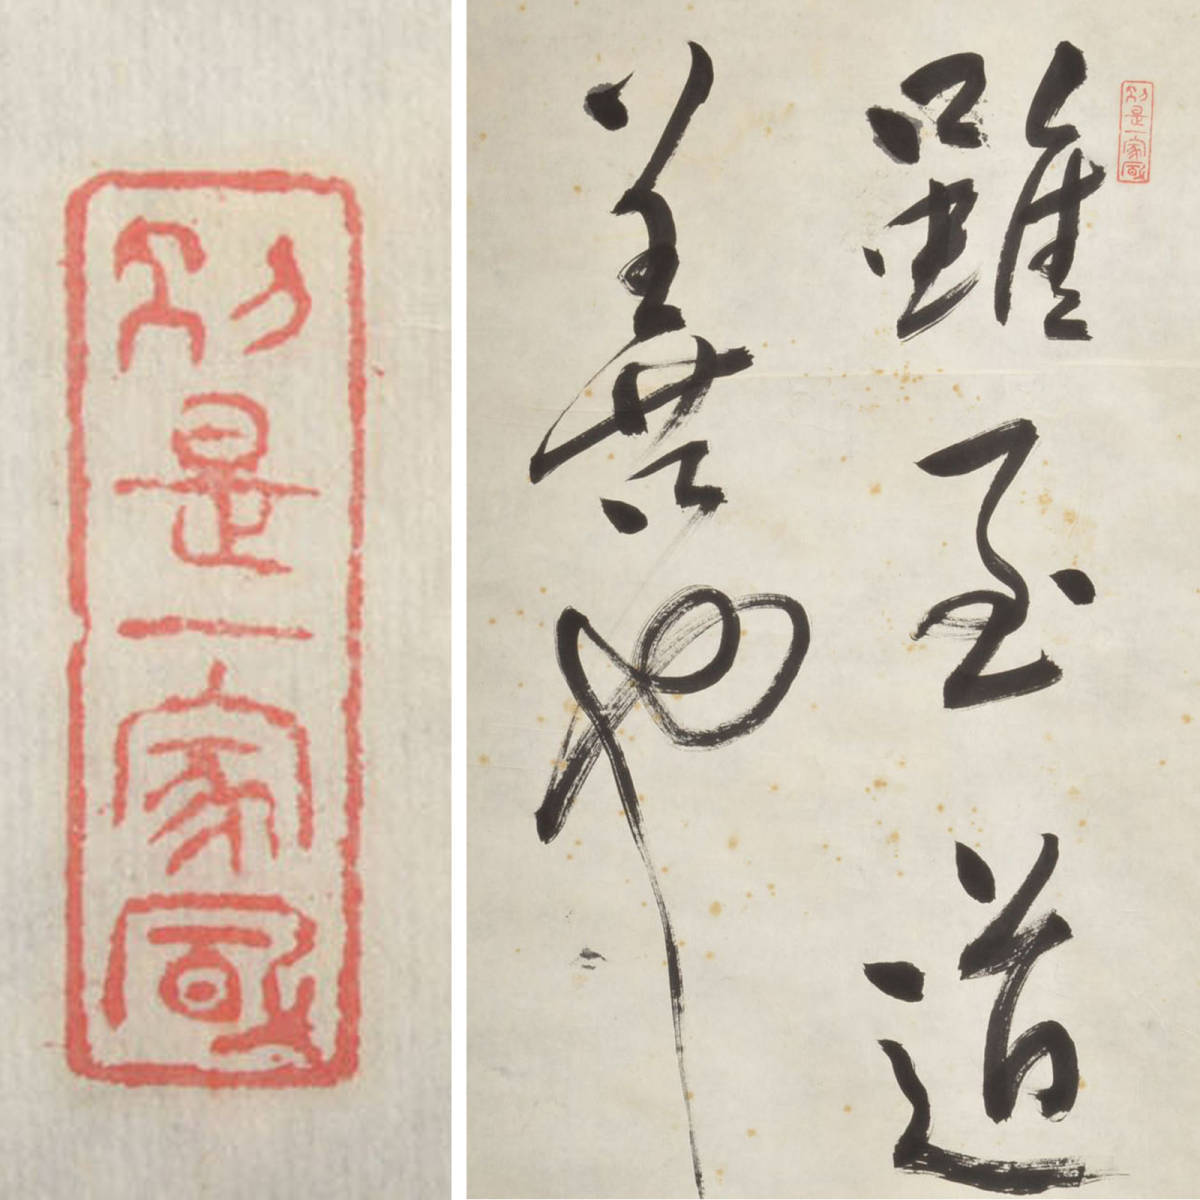 別是一家風
別是一家風
雖至道
善也